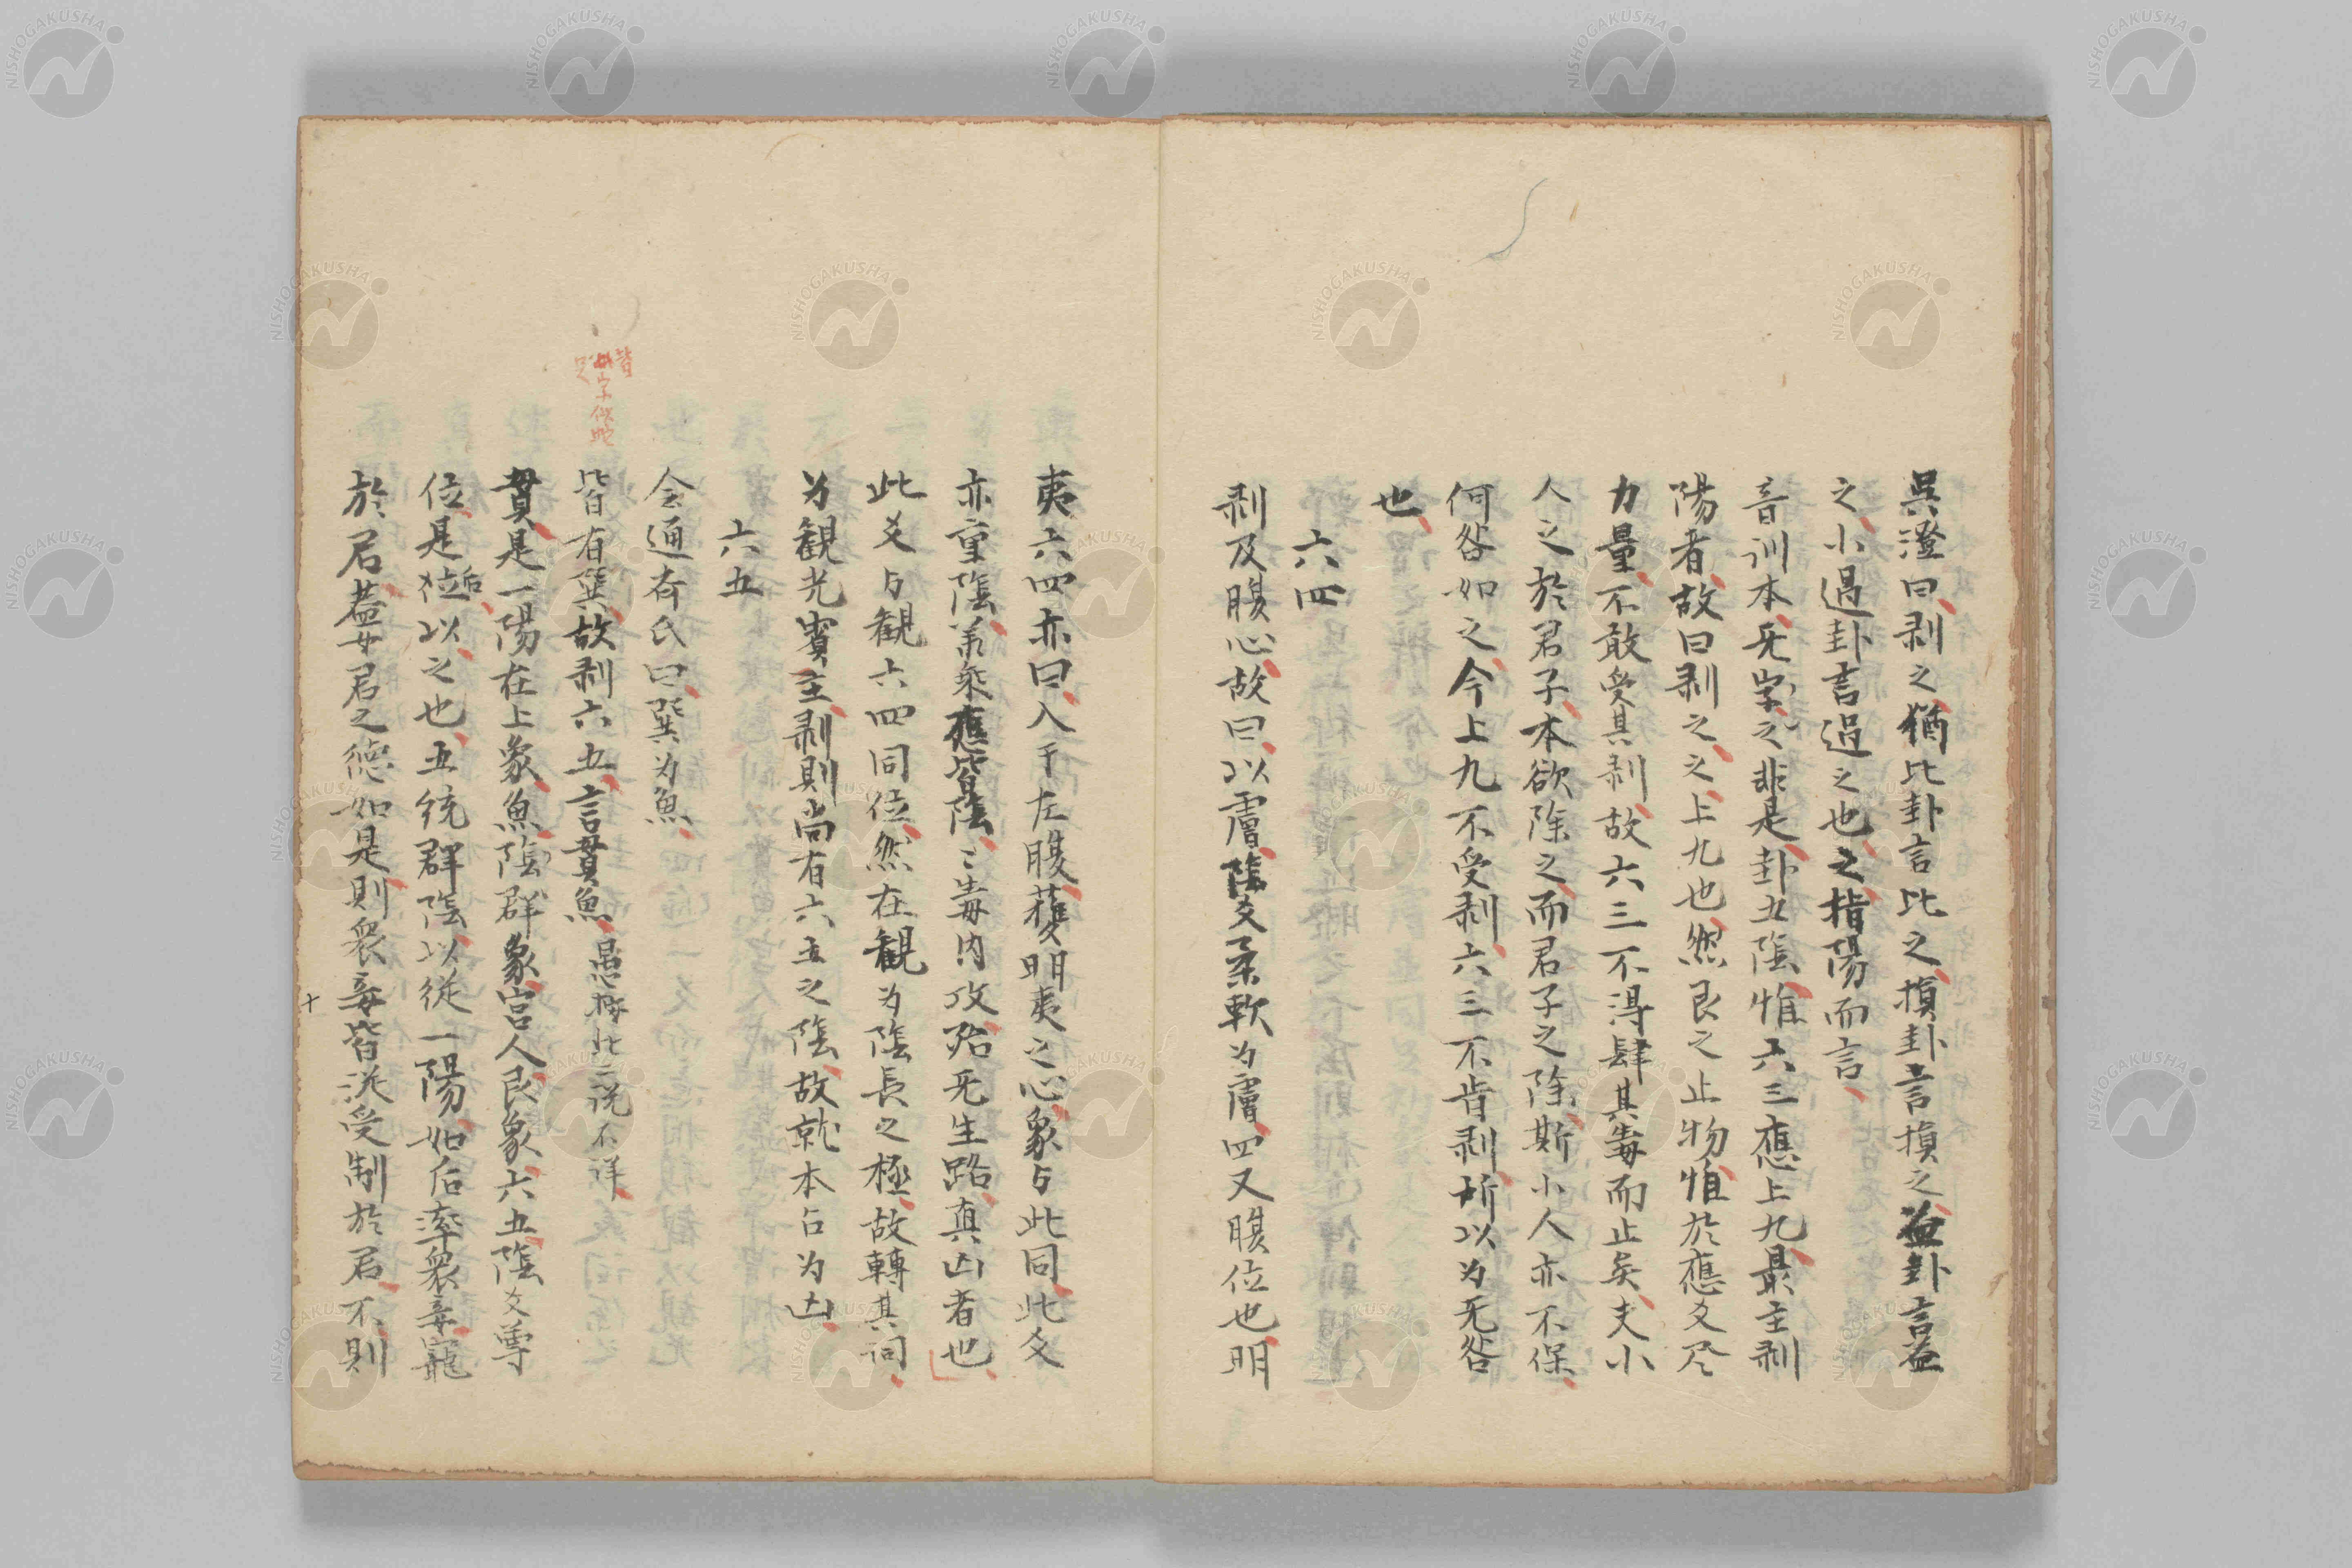 呉澄曰剥之猶比卦言比之損卦言損之益卦言益
之小過卦言過之也之指陽而言
音訓本无字之非是卦五陰惟六三應上九最主剥
陽者故曰剥之之上九也然艮之止物惟於應爻尽
力量不敢受其剥故六三不得肆其毒而止矣夫小
人之於君子本欲除之而君子之除斯小人亦不保
何咎如之今上九不受剥六三不肯剥所以为无咎
也
六四
剥及腹心故曰以膚陰爻柔軟为膚四又腹位也明
夷六四亦曰入于左腹獲明夷之心象与此同此爻
亦重陰兼乘應皆陰〻毒内攻殆无生路真凶者也
此爻与観六四同位然在観为陰長之極故轉其詞
为観光賓主剥則尚有六五之陰故就本占为凶
六五
会通斉氏曰巽为魚
皆有巽故剥六五言貫魚 愚按此三説不詳
貫是一陽在上象魚陰群象宮人艮象六五陰爻尊
位是后以之也五统群陰以従一陽如后率衆妾寵
於君蓋女君之徳如是則衆妾皆従受制於君不則
十
皆
字似蛇
NISHOGAKUSHA